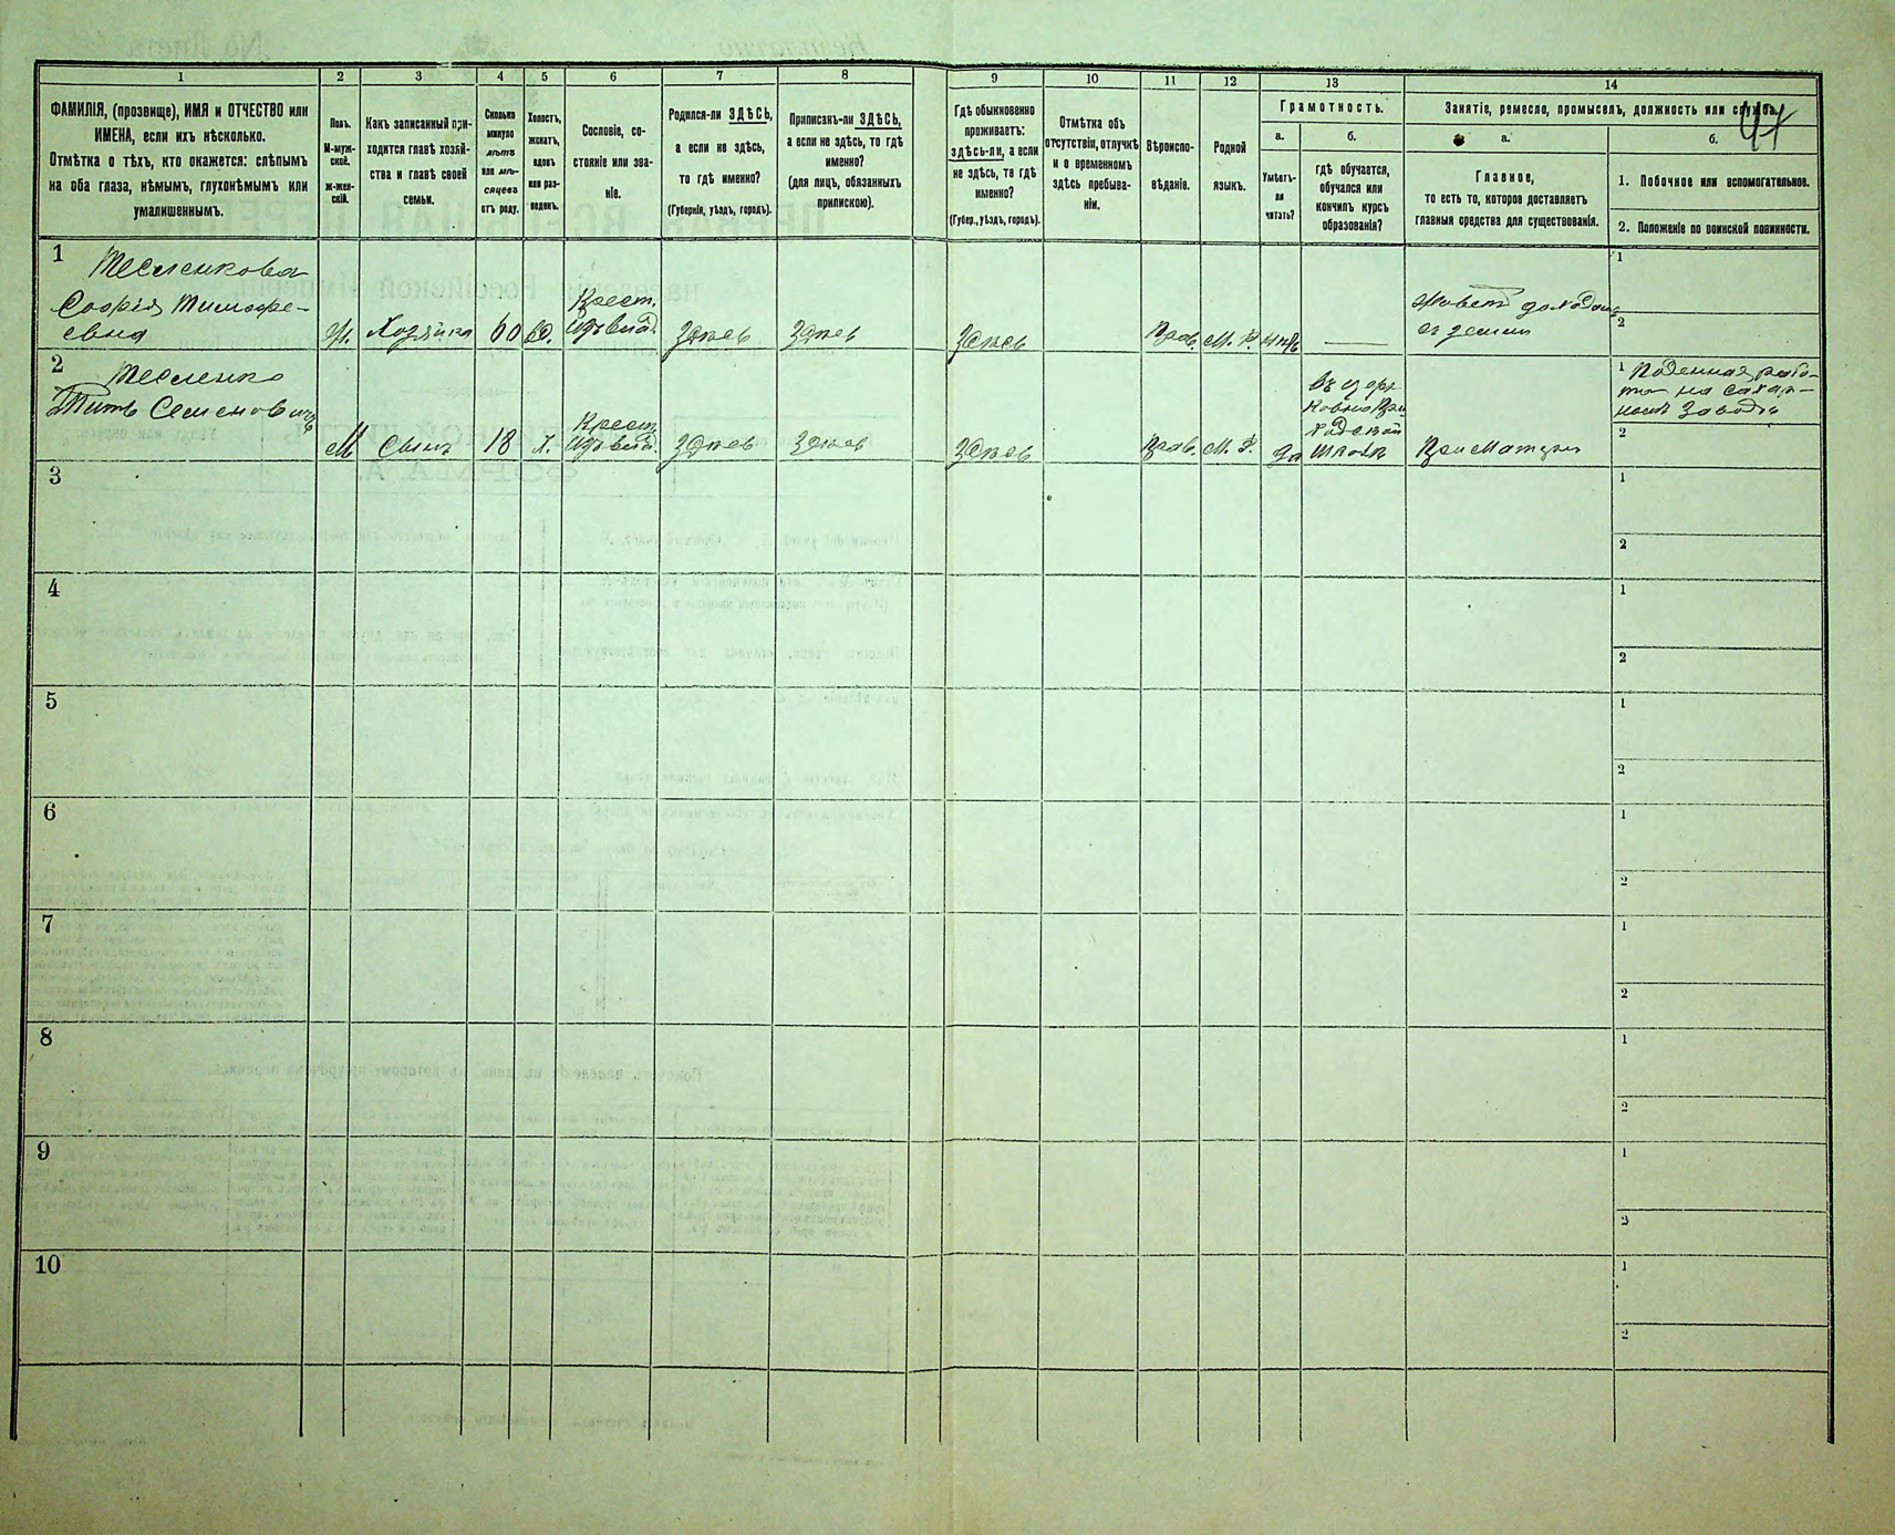 1 2 3 4 5 6 7 8 9 10 11 12 13 14
44
ФАМИЛІЯ, (прозвище), ИМЯ и ОТЧЕСТВО или
ИМЕНА, если ихъ нѣсколько.
Отмѣтка о тѣхъ, кто окажется: слѣпымъ
на оба глаза, нѣмымъ, глухонѣмымъ или
умалишеннымъ.
Полъ.
М-муж-
ской.
ж-жен-
скій.
Какъ записанный при-
ходится главѣ хозяй-
ства и главѣ своей
семьи.
Сколько
минуло
лѣтъ
или мѣ-
сяцевъ
отъ роду.
Холостъ,
женатъ,
вдовъ
или раз-
веденъ.
Сословіе, со-
стояніе или зва-
ніе.
Родился-ли ЗДѢСЬ,
а если не здѣсь,
то гдѣ именно?
(Губернія, уѣздъ, городъ).
Приписанъ-ли ЗДѢСЬ,
а если не здѣсь, то гдѣ
именно?
(для лицъ, обязанныхъ
припискою).
Гдѣ обыкновенно
проживаетъ:
здѣсь-ли, а если
не здѣсь, то гдѣ
именно?
(Губер., уѣздъ, городъ).
Отмѣтка объ
отсутствіи, отлучкѣ
и о временномъ
здѣсь пребыва-
ніи.
Вѣроиспо-
вѣданіе.
Родной
языкъ.
Грамотность.
а.
Умѣетъ-
ли
читать?
б.
гдѣ обучается,
обучался или
кончилъ курсъ
образованія?
Занятіе, ремесло, промыселъ, должность или служба.
а.
Главное,
то есть то, которое доставляетъ
главныя средства для существованія.
б.
1. Побочное или вспомогательное.
2. Положеніе по воинской повинности.
1
Тесленкова
Софія Тимофе-
евна
ж.
Хозяйка
60
вд.
Крест.
Здѣсь
Здѣсь
Здѣсь
Прав.
М. Р.
нѣтъ
Живетъ доходомъ
съ земли
1
2
2
Тесленко
Титъ Семеновичъ
М
Сынъ
18
х.
Крест.
Здѣсь
Здѣсь
Здѣсь
Прав.
М. Р.
да
въ церк
ковно при
ходской
школѣ
При матери
1 Поденная рабо-
та на сахар-
номъ заводѣ
2
3
1
2
4
1
2
5
1
2
6
1
2
7
1
2
8
1
2
9
1
2
10
1
2